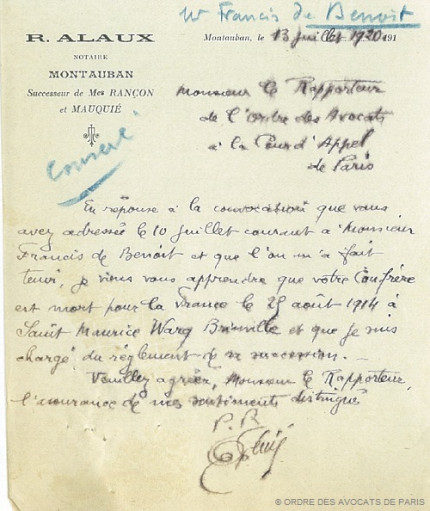 Mr Francis de Benoit
R. ALAUX
NOTAIRE
MONTAUBAN
Successeur de Mes RANÇON
et MAUQUIÉ
Montauban, le 13 juillet 1920 191
Conservé
Monsieur le Rapporteur
de l'Ordre des Avocats
à la Cour d'Appel
de Paris
En réponse à la convocation que vous
avez adressée le 10 juillet courant à Monsieur
Francis de Benoit et que l'on m'a fait
tenir, je viens vous apprendre que votre Confrère
est mort pour la France le 25 août 1914 à
Saint Maurice Warcq Brainville et que je suis
chargé du règlement de sa succession. —
Veuillez agréer, Monsieur le Rapporteur,
l'assurance de mes sentiments distingués
© ORDRE DES AVOCATS DE PARIS